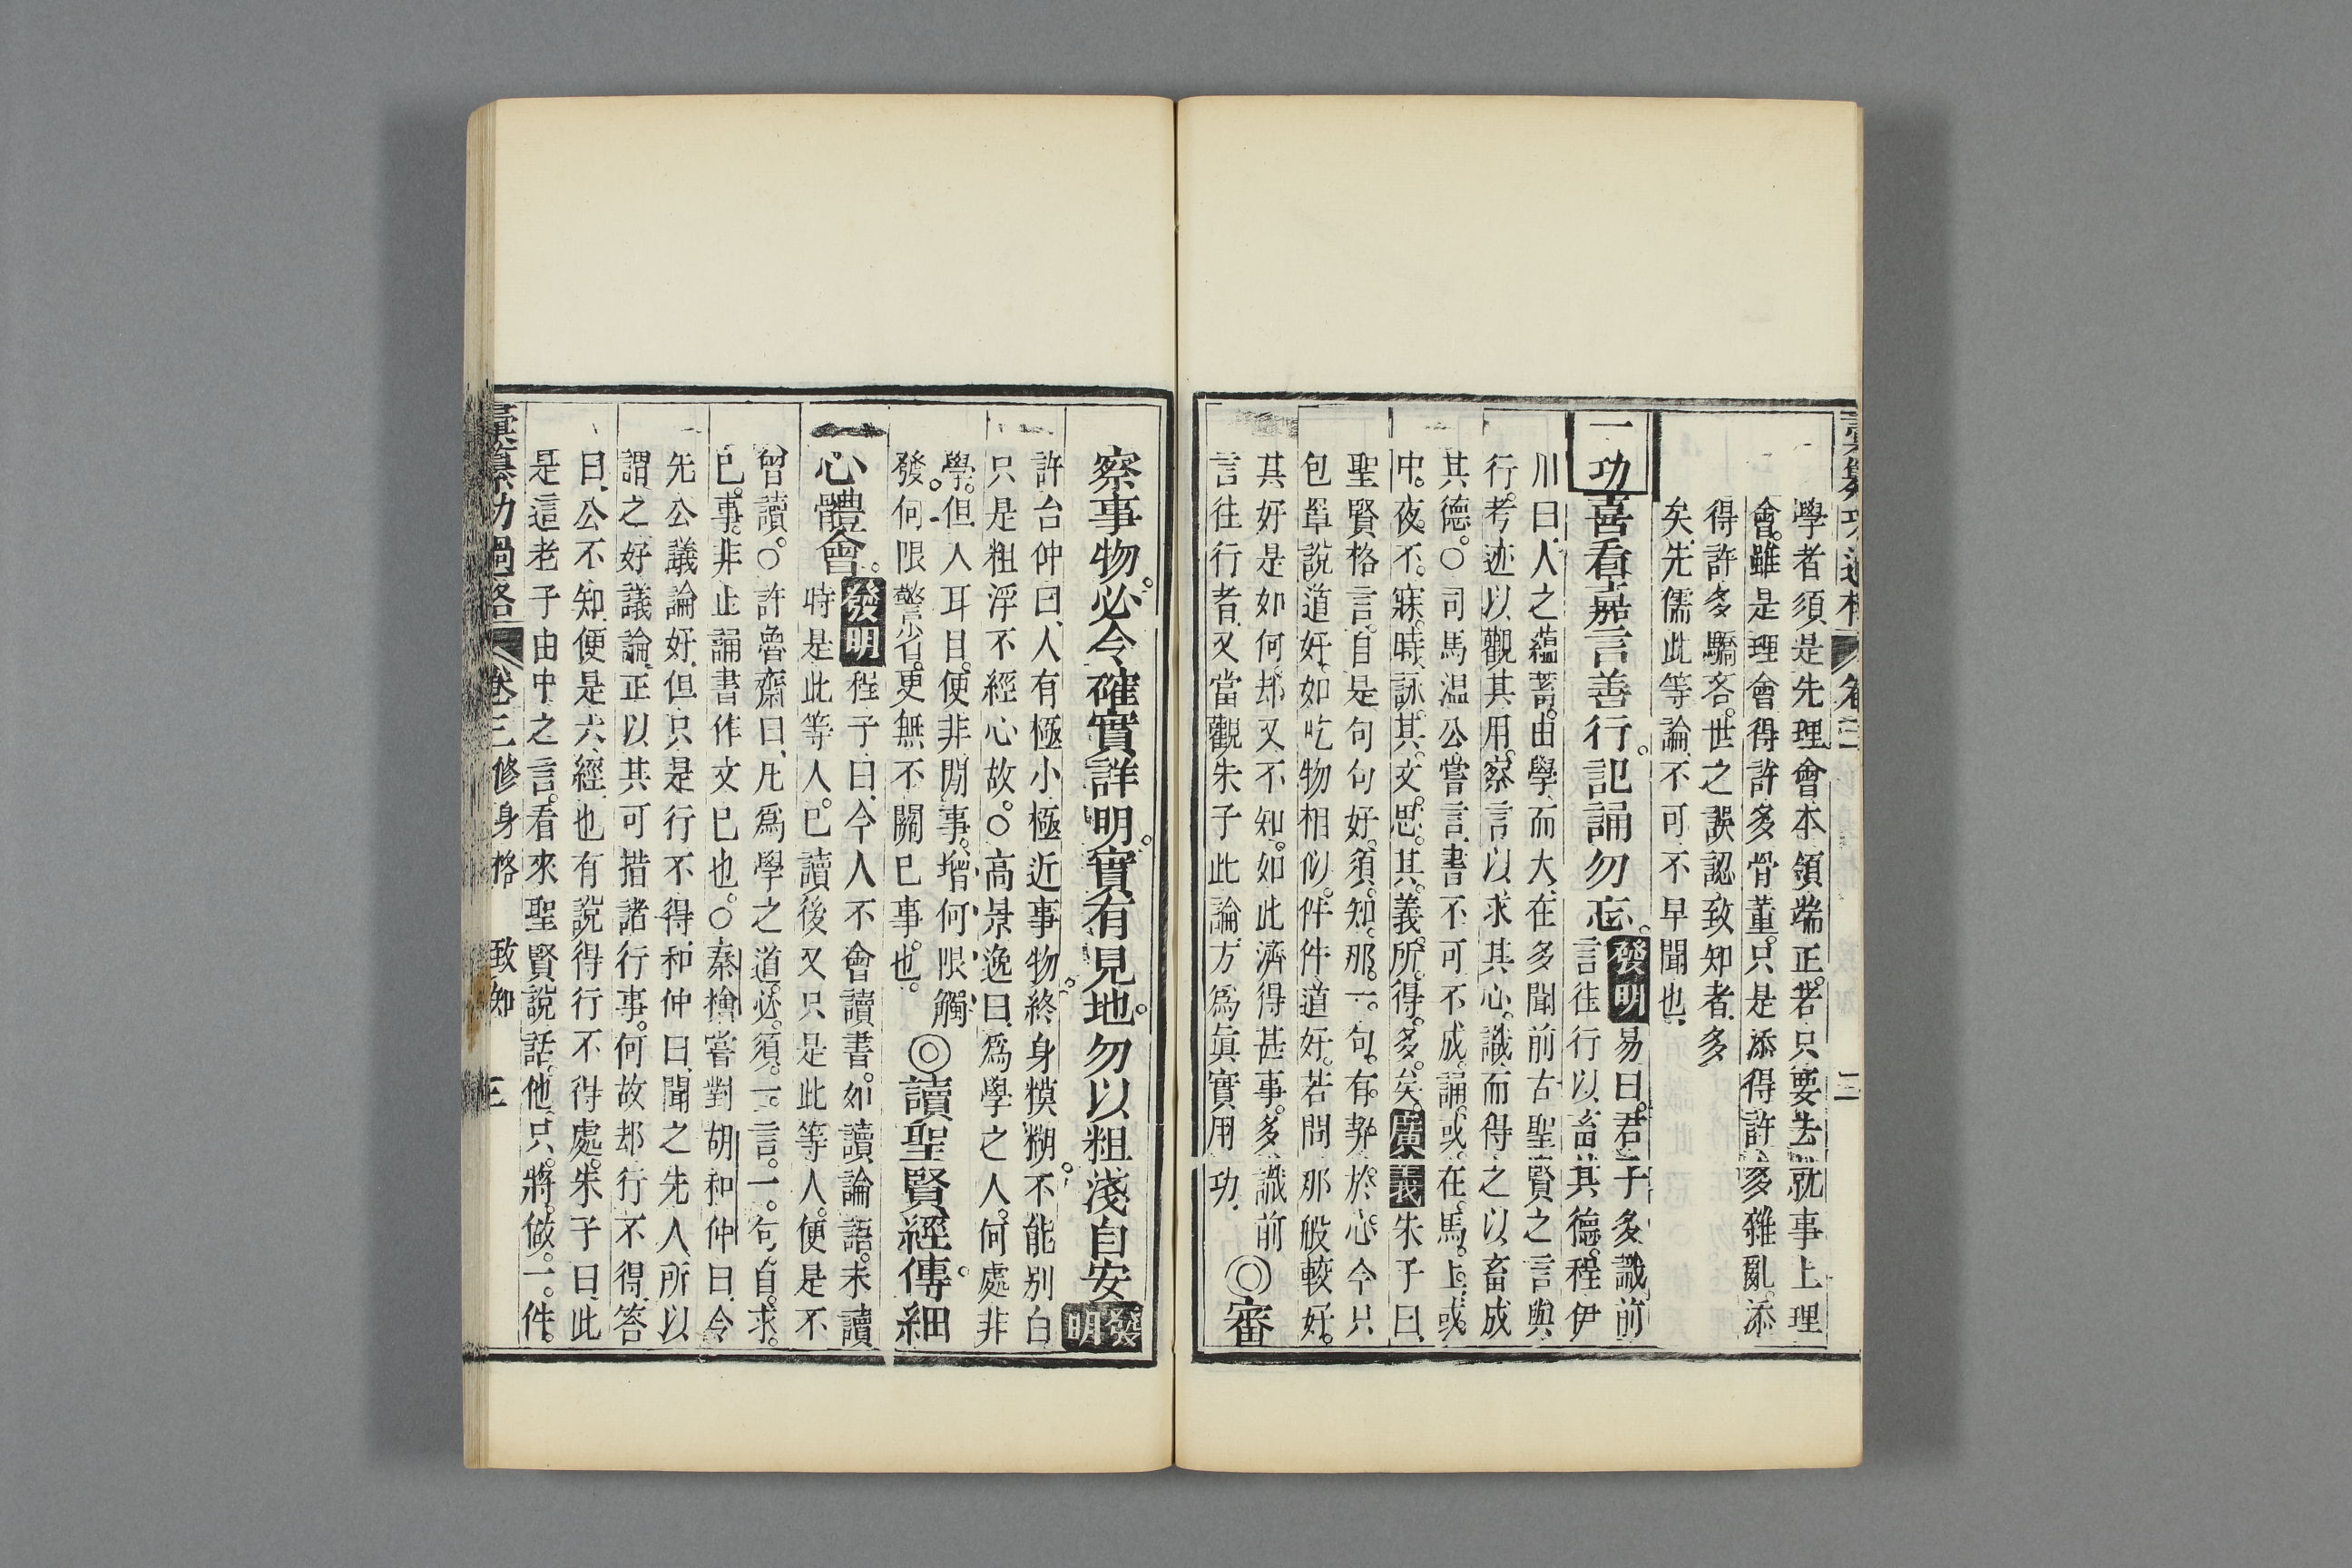 彙纂功過格 卷三 三
學者須是先理會本領端正。若只要去就事上理
會。雖是理會得許多骨董。只是添得許多雜亂。添
得許多驕吝。世之誤認致知者。多
矣。先儒此等論不可不早聞也。
一功喜看嘉言善行。記誦勿忘。發明易曰。君子多識前
言往行以畜其德。程伊
川曰。人之蘊蓄。由學而大。在多聞前古聖賢之言與
行。考迹以觀其用。察言以求其心。識而得之以畜成
其德。○司馬温公嘗言。書不可不成誦。或在馬上。或
中夜不寐時。詠其文。思其義。所得多矣。廣義朱子曰。
聖賢格言。自是句句好。須知那一句有契於心。今只
包羣說道好。如吃物相似。件件道好。若問那般較好。
其好是如何。却又不知。如此濟得甚事。多識前
言往行者。又當觀朱子此論。方爲眞實用功。◎審
察事物。必令確實詳明。實有見地。勿以粗淺自安發明
許台仲曰。人有極小極近事物。終身糢糊。不能別白
只是粗浮不經心故。○高景逸曰。爲學之人。何處非
學。但人耳目。便非閒事。增何限觸
發。何限警省。更無不關己事也。◎讀聖賢經傳。細
心體會。發明程子曰。今人不會讀書。如讀論語。未讀
時是此等人。已讀後又只是此等人。便是不
曾讀。○許魯齋曰。凡爲學之道。必須一言一句。自求
己事。非止誦書作文已也。○秦檜嘗對胡和仲曰。令
先公議論好。但只是行不得。和仲曰。聞之先人。所以
謂之好議論。正以其可措諸行事。何故却行不得。答
曰。公不知。便是六經也有說得行不得處。朱子曰。此
是這老子由中之言。看來聖賢說話。他只將做一件
彙纂功過格 卷三 修身格 致知 三